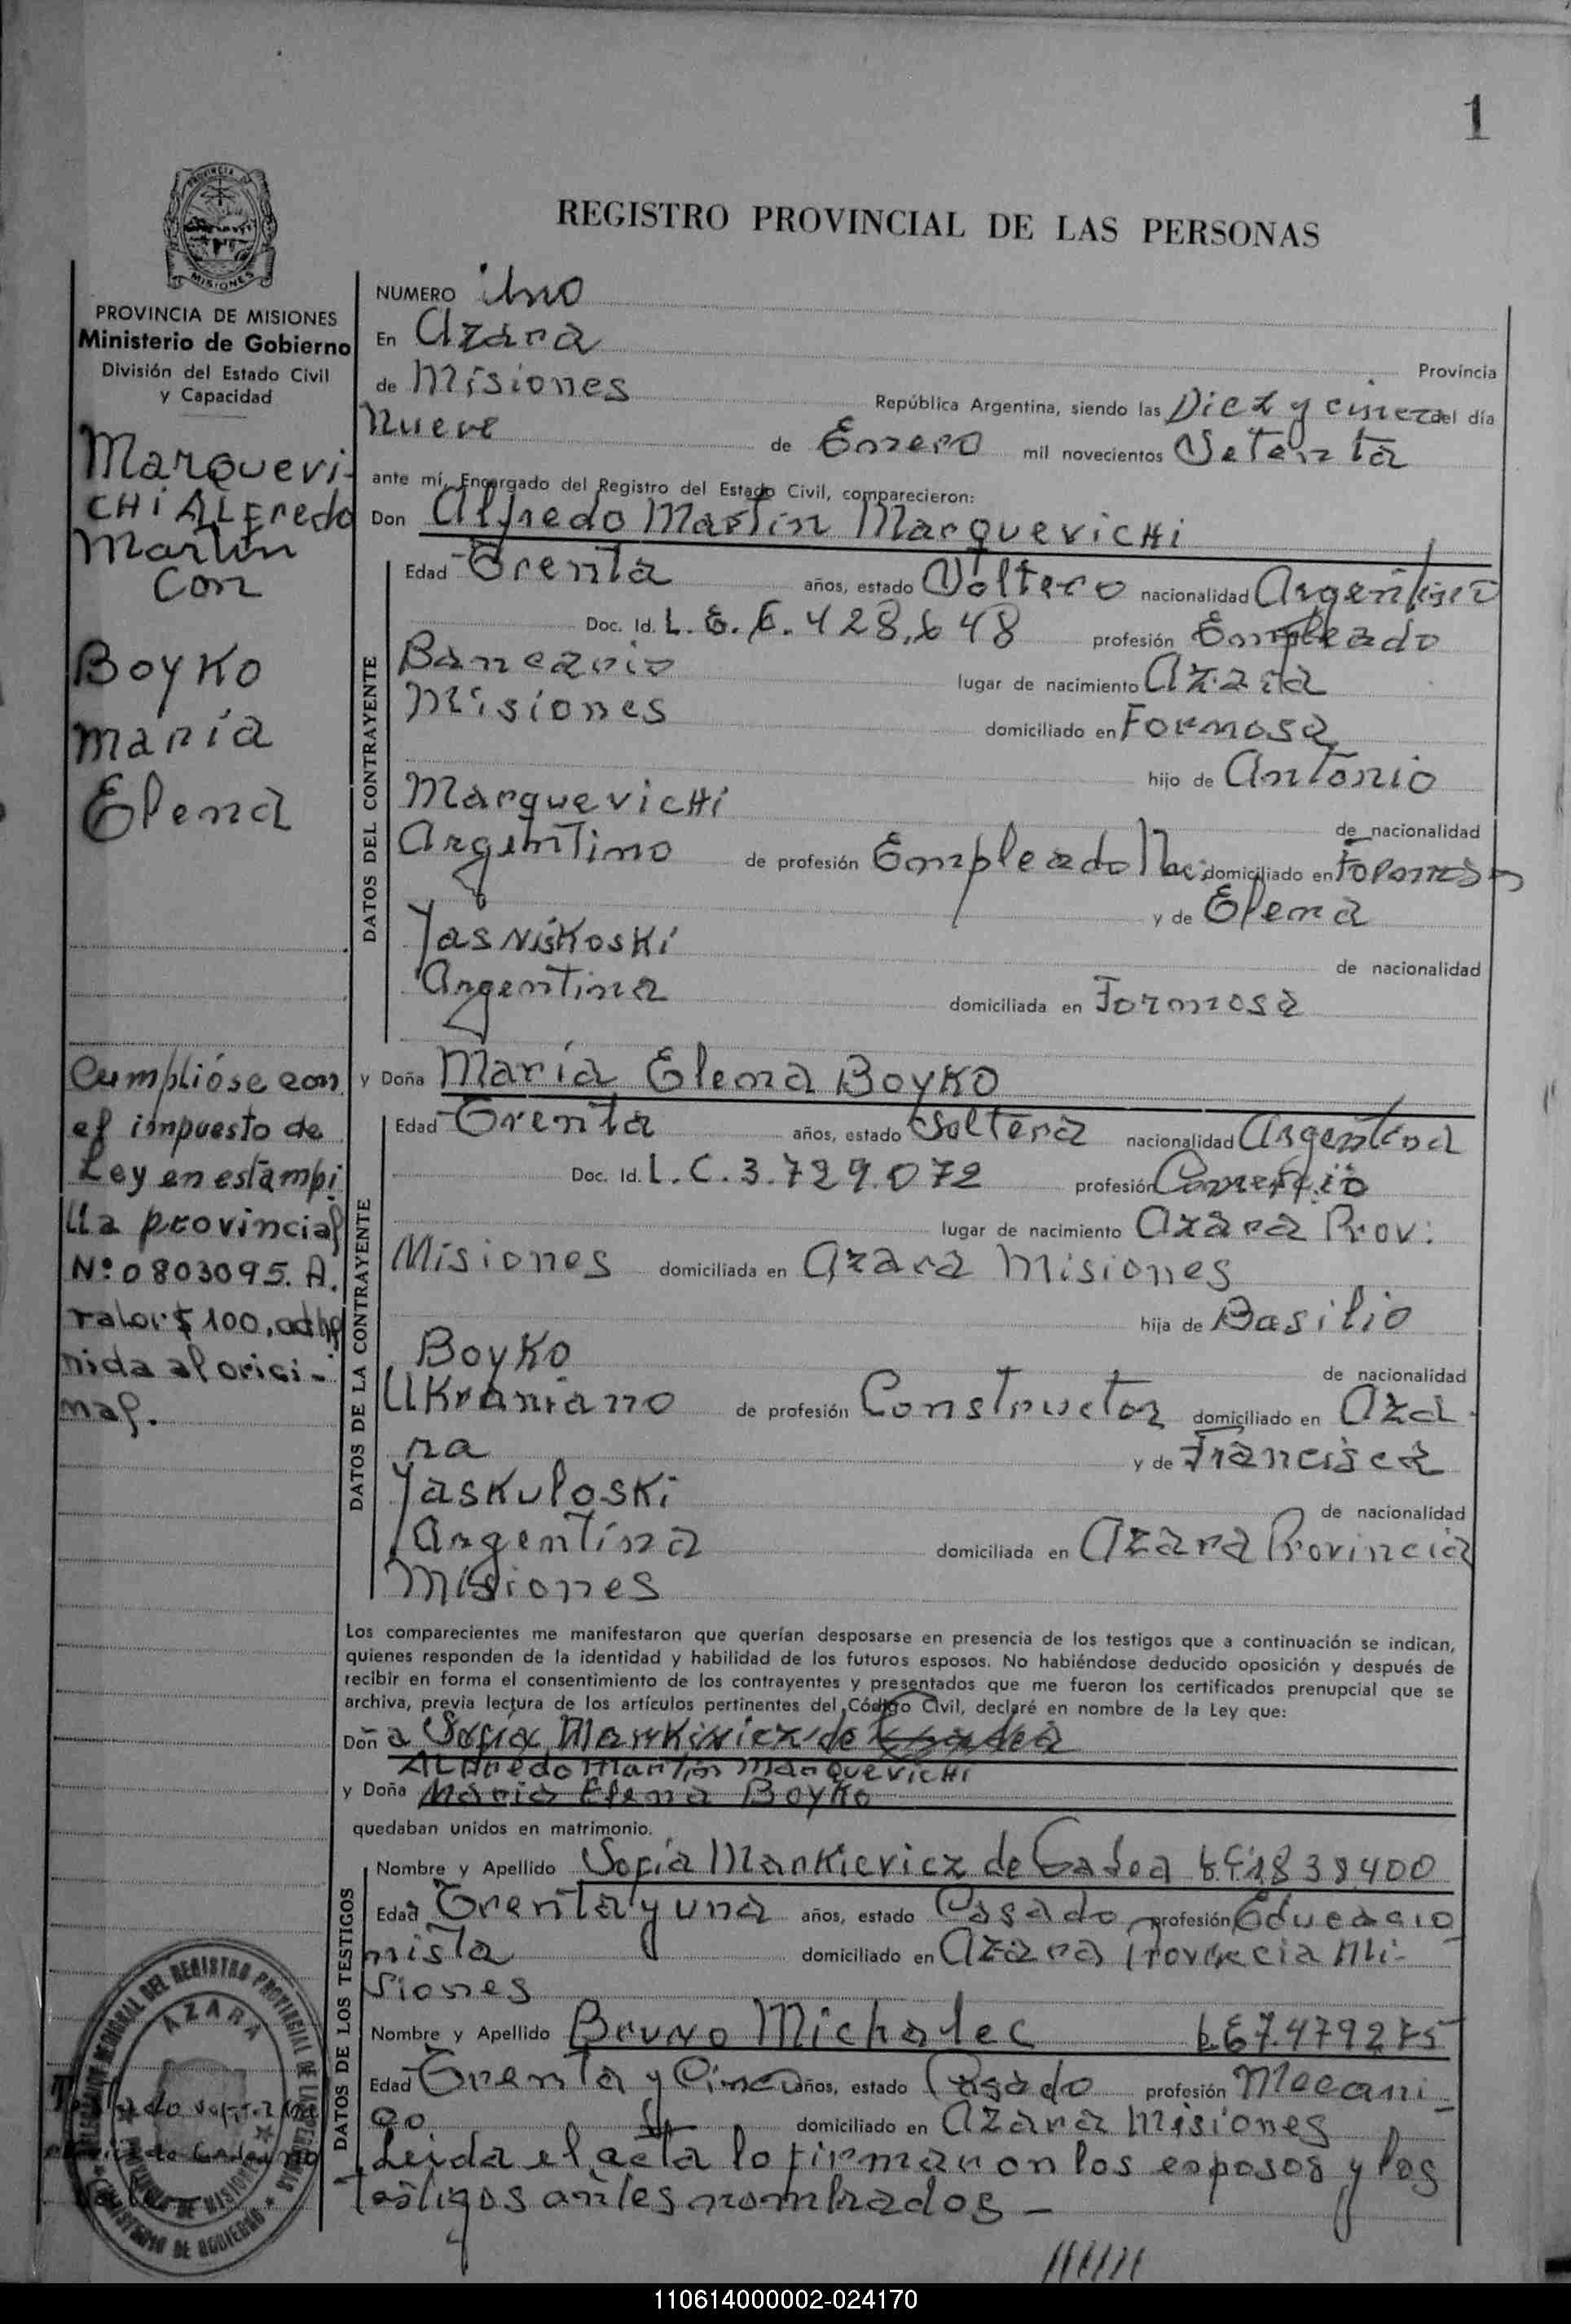 1
PROVINCIA
MISIONES
REGISTRO PROVINCIAL DE LAS PERSONAS
PROVINCIA DE MISIONES
Ministerio de Gobierno
División del Estado Civil
y Capacidad
Marquevi-
CHi ALFredo
Martin
Con
Boyko
maria
Elena
Cumplióse con
el impuesto de
Ley en estampi
lla provincial
Nº 0803095. A.
valor $ 100, adhe
rida al origi-
nal.
NUMERO Uno
En Azara
Provincia
de Misiones República Argentina, siendo las Diez y cinco del día
Nueve de Enero mil novecientos Setenta
ante mí, Encargado del Registro del Estado Civil, comparecieron:
Don Alfredo Martín MarquevicHi
DATOS DEL CONTRAYENTE
Edad Trenta años, estado Soltero nacionalidad Argentino
Doc. Id. L. E. 6. 428,648 profesión Empleado
Bancario lugar de nacimiento Azara
Misiones domiciliado en Formosa
hijo de Antonio
MarquevicHi de nacionalidad
Argentino de profesión Empleado Nac. domiciliado en Formosa
y de Elena
Yasniskoski de nacionalidad
Argentina domiciliada en Formosa
y Doña María Elena Boyko
DATOS DE LA CONTRAYENTE
Edad Trenta años, estado Soltera nacionalidad Argentina
Doc. Id. L. C. 3.729.072 profesión Comercio
lugar de nacimiento Azara Prov:
Misiones domiciliada en Azara Misiones
hija de Basilio
Boyko de nacionalidad
Ukraniano de profesión Constructor domiciliado en Aza-
ra y de Francisca
Yaskuloski de nacionalidad
Argentina domiciliada en Azara Provincia
Misiones
Los comparecientes me manifestaron que querían desposarse en presencia de los testigos que a continuación se indican,
quienes responden de la identidad y habilidad de los futuros esposos. No habiéndose deducido oposición y después de
recibir en forma el consentimiento de los contrayentes y presentados que me fueron los certificados prenupcial que se
archiva, previa lectura de los artículos pertinentes del Código Civil, declaré en nombre de la Ley que:
Doña Sofía Mankievicz de
ALFredo Martín MarquevicHi
y Doña María Elena Boyko
quedaban unidos en matrimonio.
DATOS DE LOS TESTIGOS
Nombre y Apellido Sofía Mankievicz de Gadea
Edad Trenta y una años, estado Casado profesión Educacio
nista domiciliado en Azara Provincia Mi-
siones
Nombre y Apellido Bruno Michalec
Edad Trenta y Cinco años, estado Casado profesión Mecani-
co domiciliado en Azara Misiones
Leida el acta lo firmaron los esposos y los
testigos antes nombrados -
AZARA
110614000002-024170